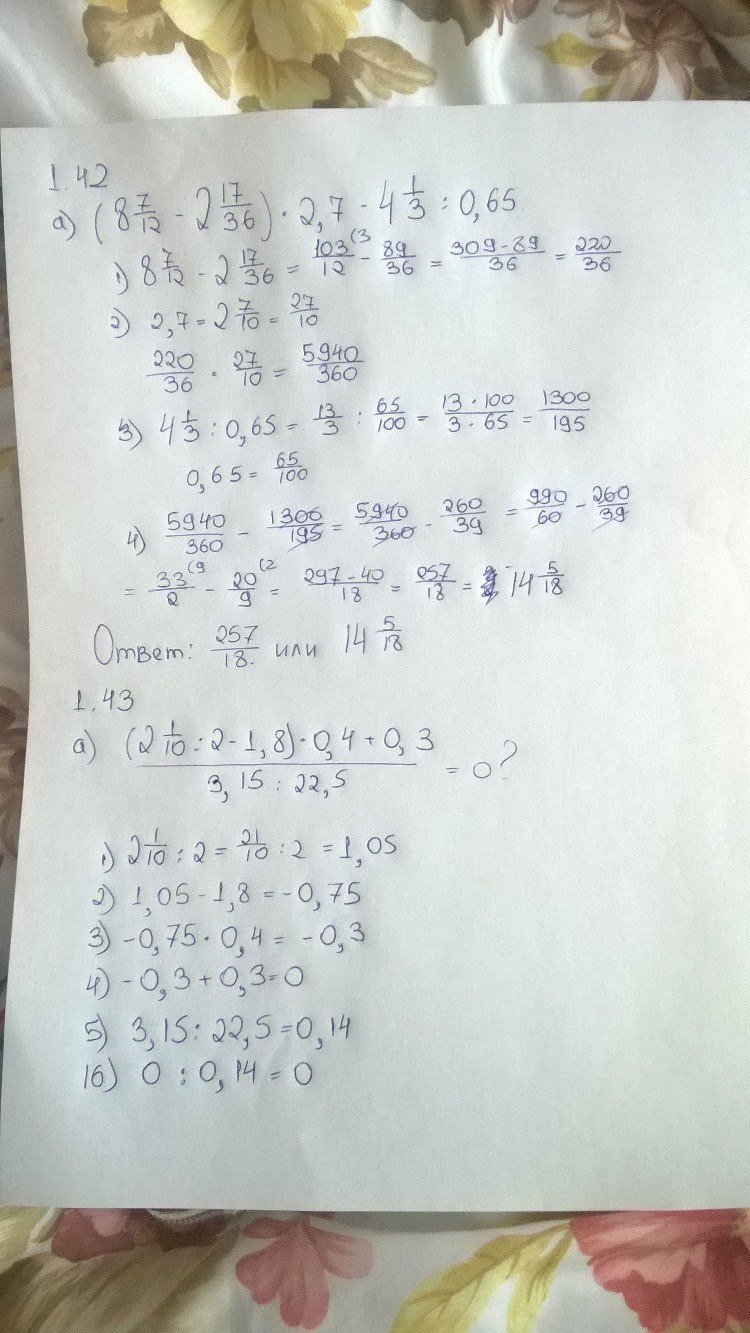 1.42
а) (8 7/12 - 2 17/36) · 2,7 - 4 1/3 : 0,65
1) 8 7/12 - 2 17/36 = 103/12 (3 - 89/36 = 309-89/36 = 220/36
2) 2,7 = 2 7/10 = 27/10
220/36 · 27/10 = 5940/360
3) 4 1/3 : 0,65 = 13/3 : 65/100 = 13·100/3·65 = 1300/195
0,65 = 65/100
4) 5940/360 - 1300/195 = 5940/360 - 260/39 = 990/60 - 260/39
= 33/2 (9 - 20/9 (2 = 297-40/18 = 257/18 = 14 5/18
Ответ: 257/18. или 14 5/18
1.43
а) (2 1/10 : 2 - 1,8) · 0,4 + 0,3 / 3,15 : 22,5 = 0?
1) 2 1/10 : 2 = 21/10 : 2 = 1,05
2) 1,05 - 1,8 = -0,75
3) -0,75 · 0,4 = -0,3
4) -0,3 + 0,3 = 0
5) 3,15 : 22,5 = 0,14
16) 0 : 0,14 = 0